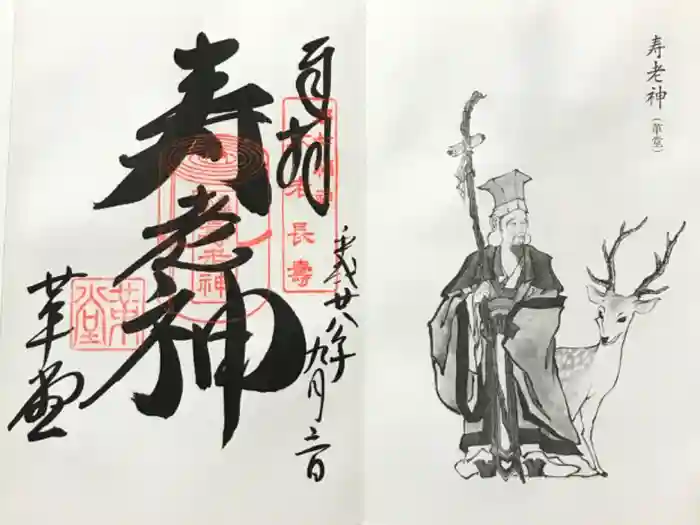 奉拝
平成廿八年九月二日
寿老神
革堂
長壽
寿老神
(革堂)